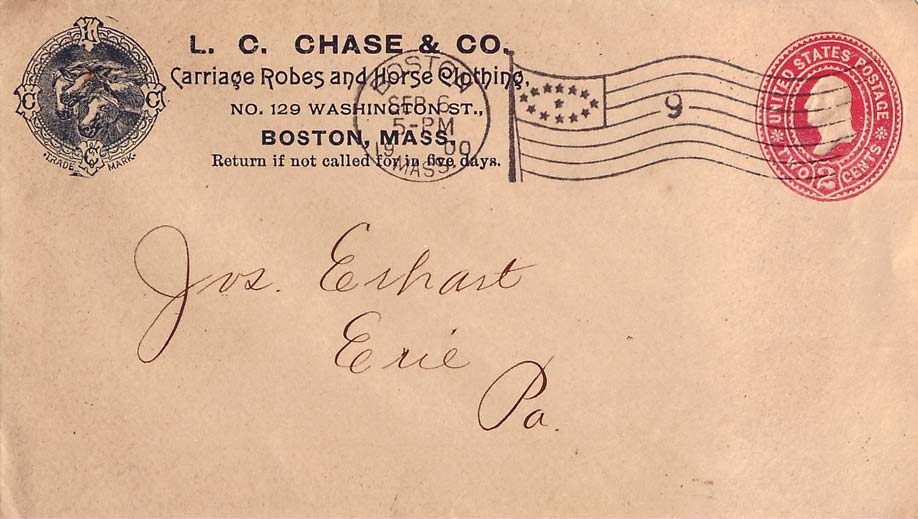 L. C. CHASE & CO.
Carriage Robes and Horse Clothing,
NO. 129 WASHINGTON ST.,
BOSTON, MASS.
Return if not called for in five days.
C C
TRADE MARK.
BOSTON
FEB 6
5-PM
1900
MASS.
9
UNITED STATES POSTAGE
TWO 2 CENTS
Jos. Erhart
Erie
Pa.